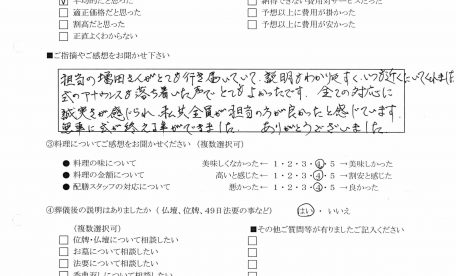 ☑ 平均的だと思った
□ 適正価格だと思った
□ 割高だと思った
□ 正直よくわからない
□ 納得できない費用対サービスだった
□ 予想以上に費用が掛かった
□ 予想以上に費用が安かった
■ご指摘やご感想をお聞かせ下さい
担当の増田さんがとても行き届いていて、説明もわかり足すく、いつも近くにいてくれました
式のアナウンスも落ち着いた声でとてもよかったです。全ての対応に
誠実さが感じられ、私共全員が担当の方が良かったと感じています。
無事に式が終える事ができました。ありがとうございました
③料理についてご感想をお聞かせください（複数選択可）
● 料理の味について 美味しくなかった ← 1・2・3・④・5 → 美味しかった
● 料理の金額について 高いと感じた ← 1・2・3・④・5 → 割安と感じた
● 配膳スタッフの対応について 悪かった ← 1・2・3・④・5 → 良かった
④葬儀後の説明はありましたか（仏壇、位牌、49日法要の事など） はい ・ いいえ
（複数選択可）
□ 位牌・仏壇について相談したい
□ お墓について相談したい
□ 法要について相談したい
□ 香典返しについて相談したい
■その他ご質問等が有りましたご記入ください